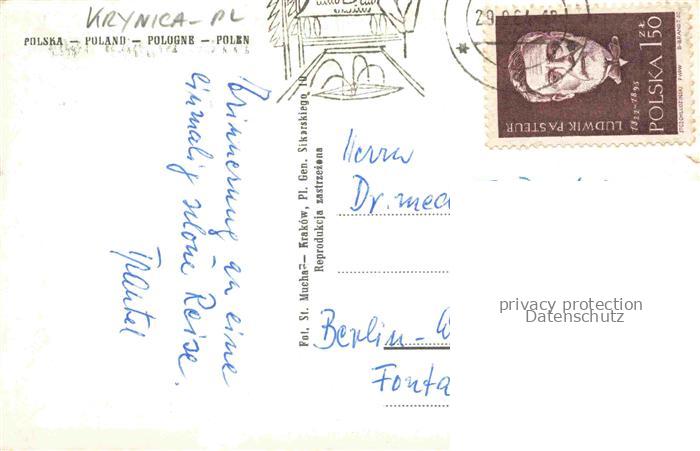 KRYNICA-PL
POLSKA — POLAND — POLOGNE — POLEN
Erinnerung an eine
einmalig schöne Reise.
Fot. St. Mucha — Kraków, Pl. Gen. Sikorskiego 10
Reprodukcja zastrzeżona
Herrn
Dr. med
Berlin-W
Fonta
LUDWIK PASTEUR
1822-1895
POLSKA 1,50 ZŁ
privacy protection
Datenschutz